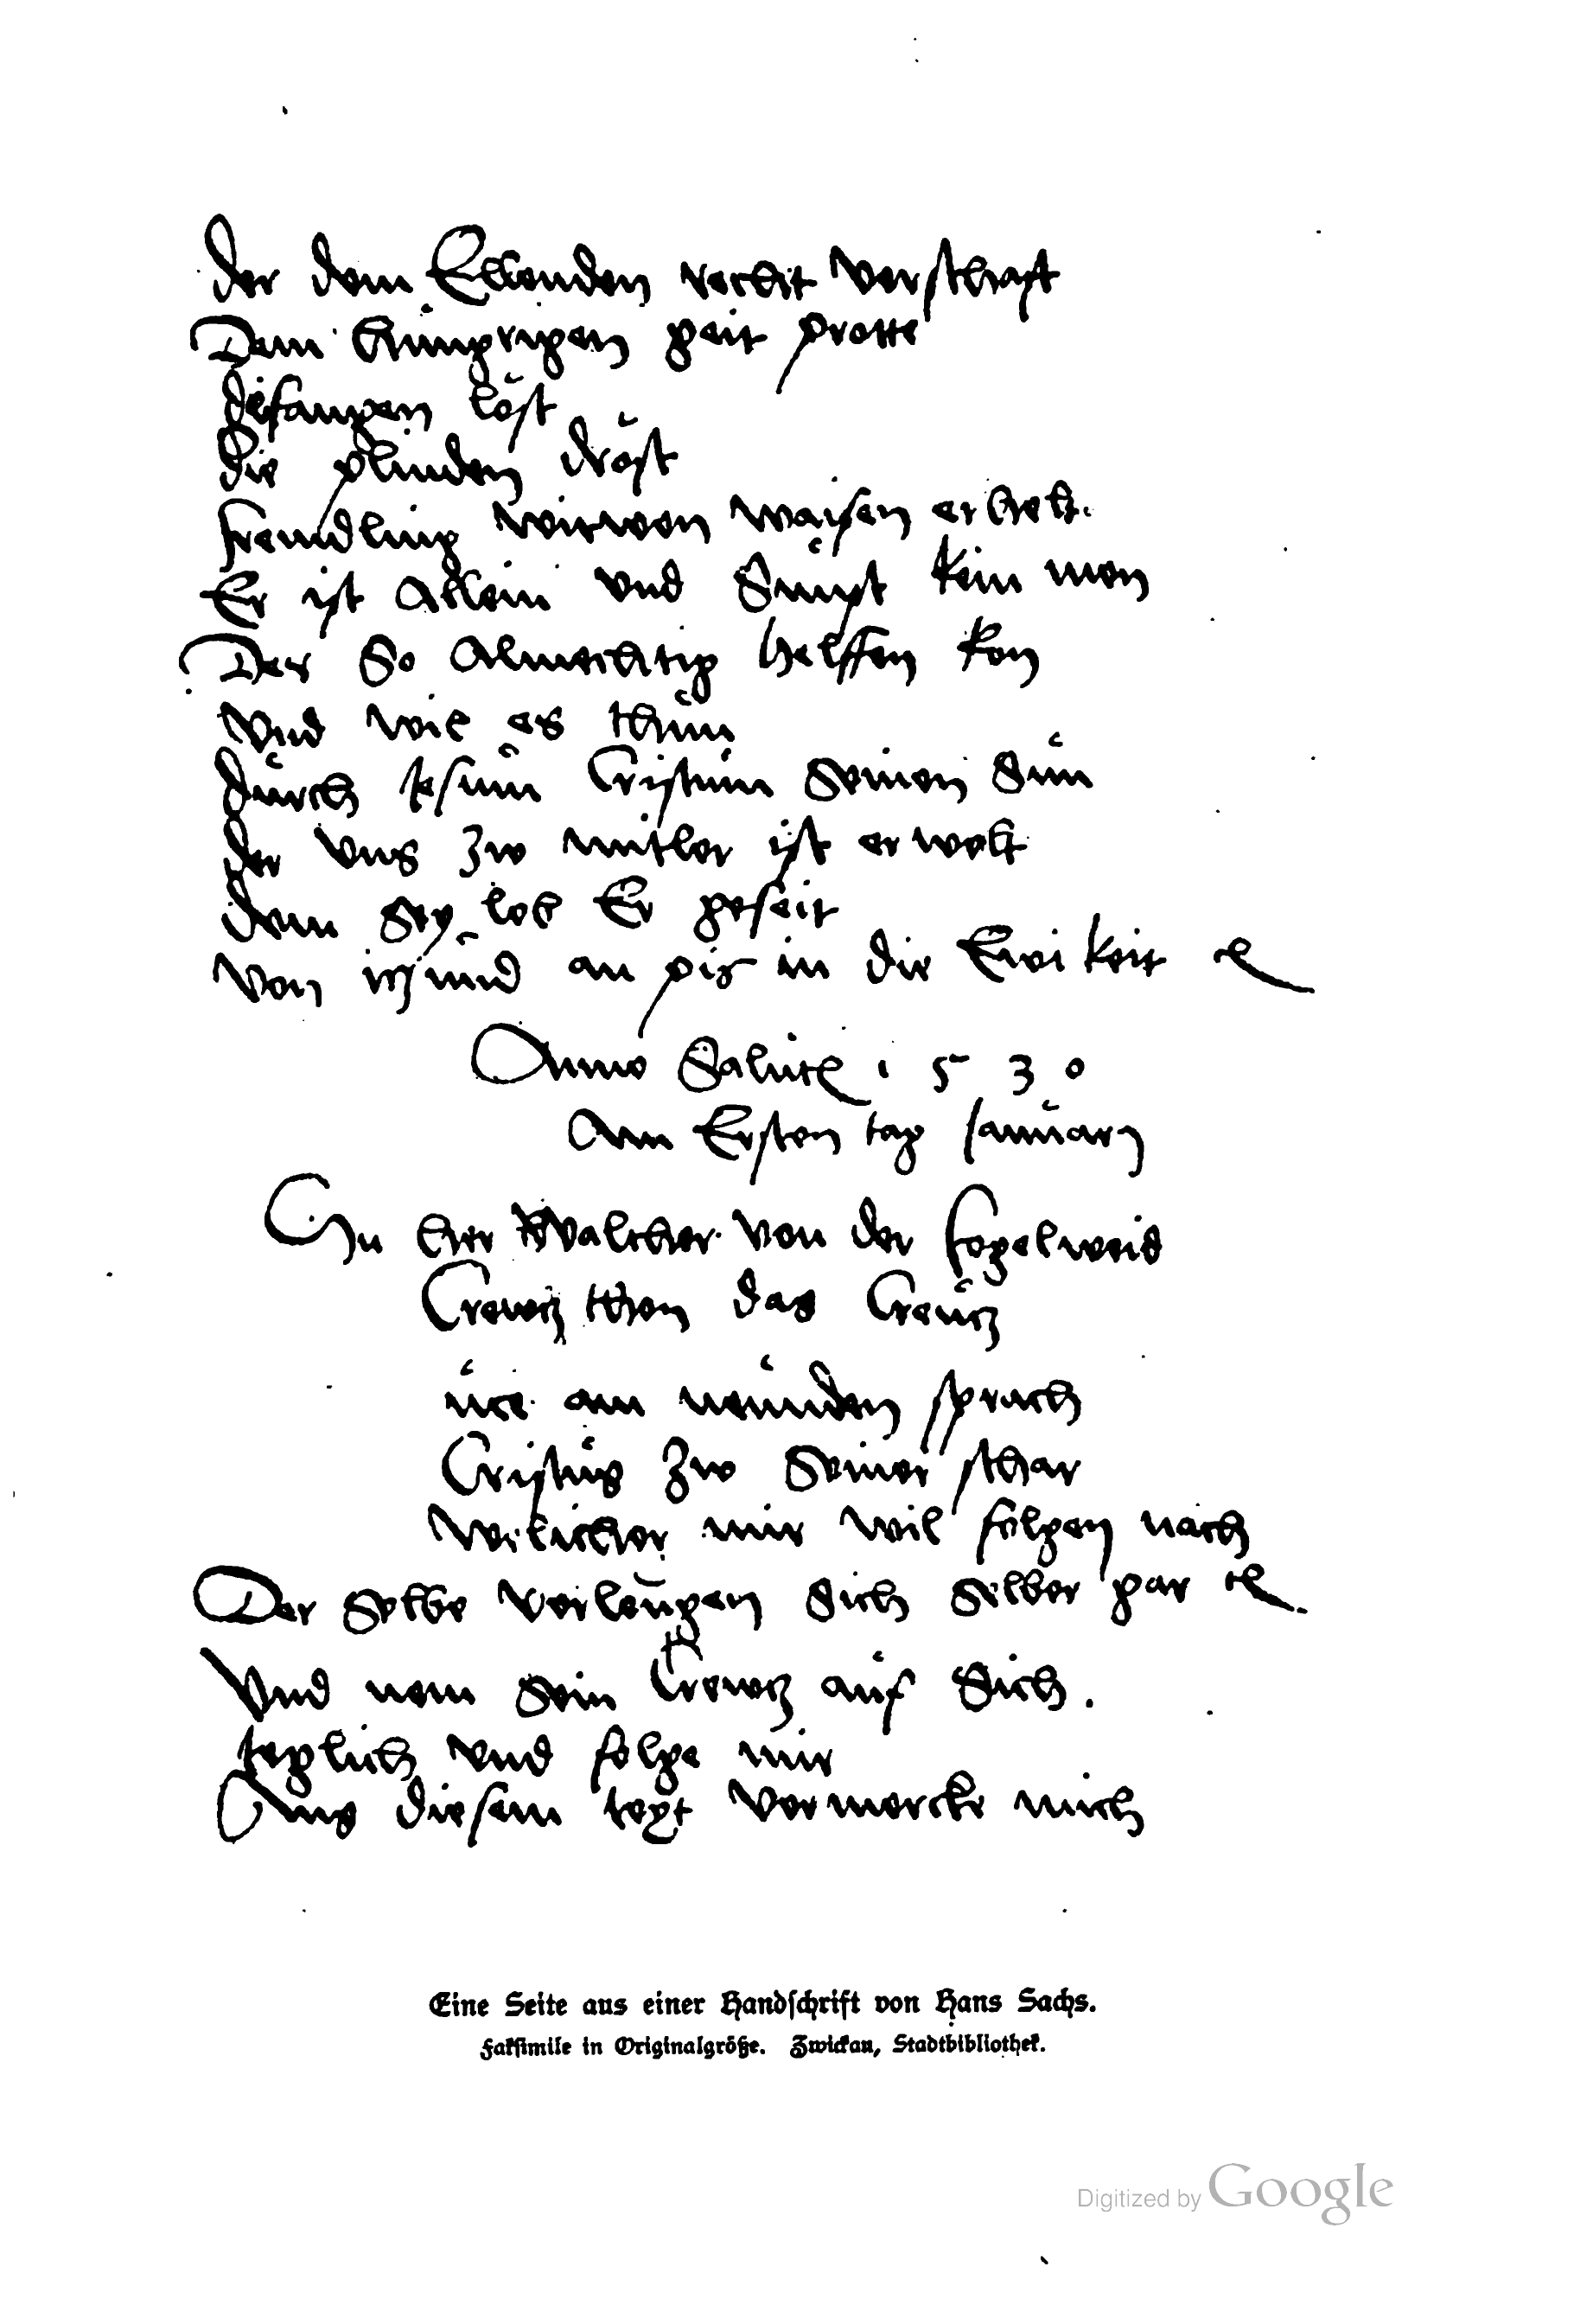 der dem Ellenden rechtt verschaft
Dem hungrigen geit protte
Gefangen löst
die plinden dröst
fremdling witwen waisen erhelt.
Er ist Allein vnd Sünst kein mon
Der So Almechtig helffen kon
Vnd wil es thün
dürch Jesüm Cristüm Seinen Sün
der vns zw mitler ist erwelt
dem sey lob Er geseit
Von iczünd an pis in die Ewikeit ꝛc
Anno Salutis 1 5 3 0
Am Ersten tag Janüary
In herr Walther von der fogelweid
Crewcz thon das Creücz
lüce am neünden sprach
Cristüs zw Seiner schar
Welicher mir wil folgen nach
Der Selbe verleügen Sich Selber gar ꝛc
Vnd nem sein Crewcz aüf Sich.
teglich vnd folge mir
Aus diesem text vermercke mich
Eine Seite aus einer Handſchrift von Hans Sachs.
Fakſimile in Originalgröße. Zwickau, Stadtbibliothek.
Digitized by Google